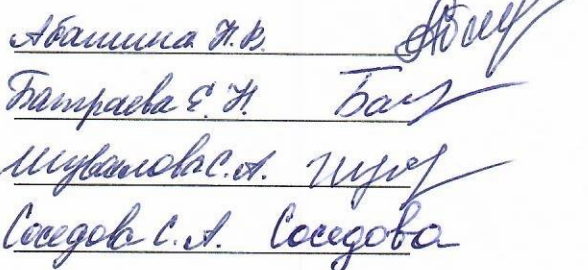 Абашина Н.В.
Батраева Е.Н. Бат
Шувалова С.А. Шув
Соседова С.А. Соседова